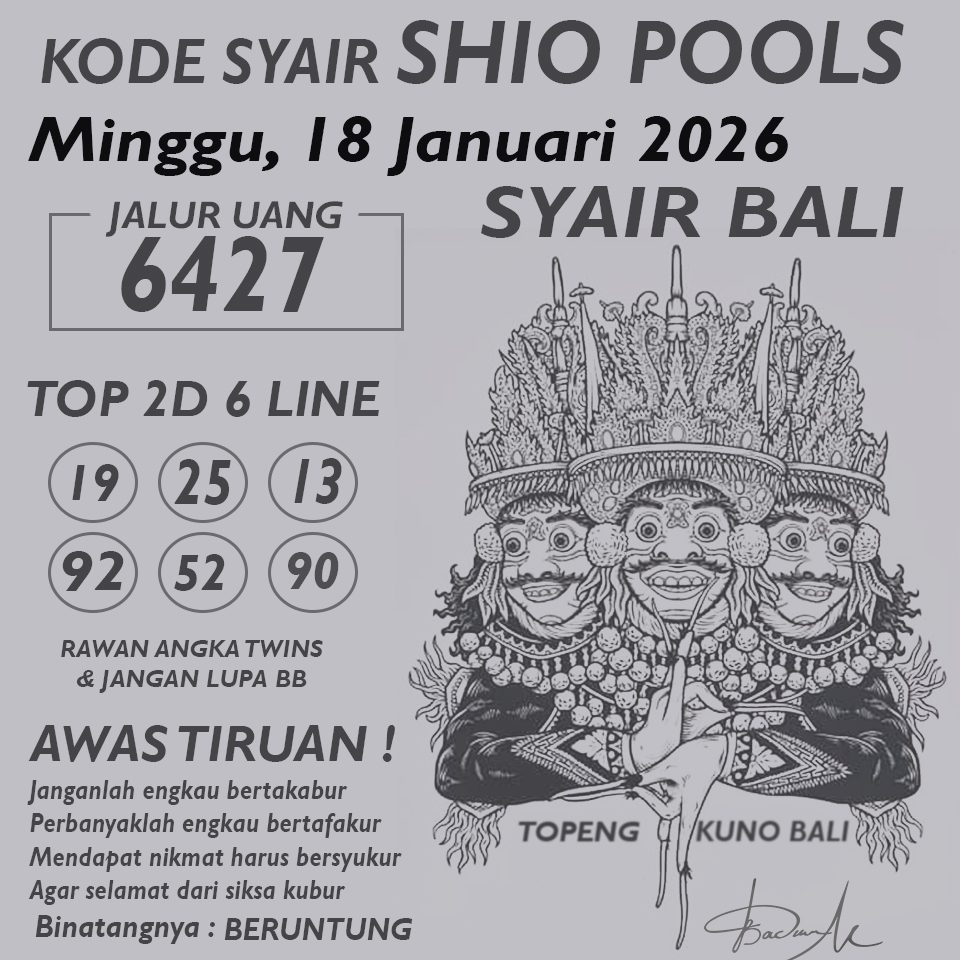 KODE SYAIR SHIO POOLS
Minggu, 18 Januari 2026
SYAIR BALI
JALUR UANG
6427
TOP 2D 6 LINE
19 25 13
92 52 90
RAWAN ANGKA TWINS
& JANGAN LUPA BB
AWAS TIRUAN !
Janganlah engkau bertakabur
Perbanyaklah engkau bertafakur
Mendapat nikmat harus bersyukur
Agar selamat dari siksa kubur
Binatangnya : BERUNTUNG
TOPENG KUNO BALI